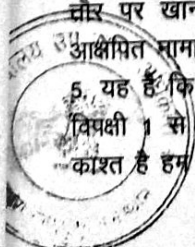 तौर पर खान
आक्षेपित माम
5. यह है कि
विपक्षी 1 से
कांश्त है हम